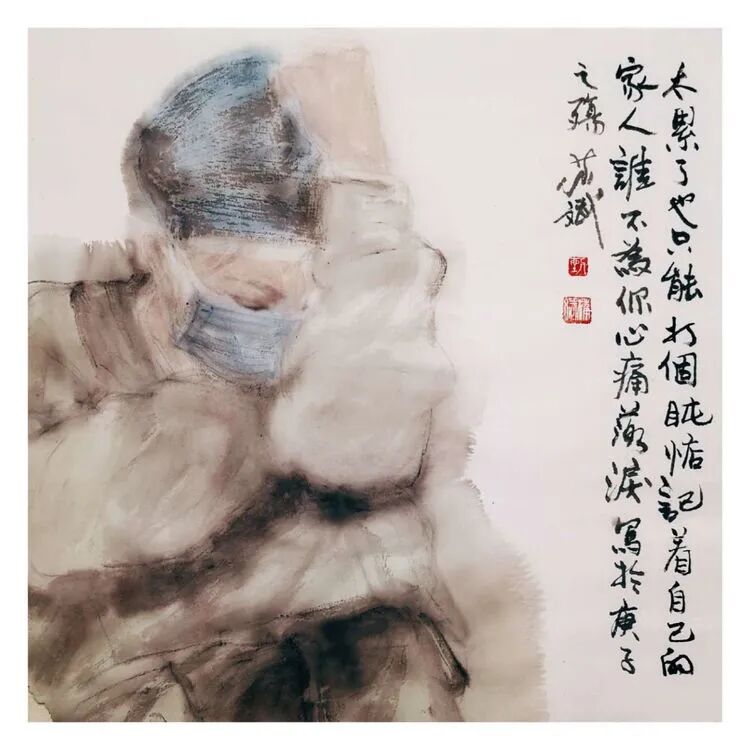 太累了也只能打個盹惦記着自己的
家人誰不為你心痛落淚寫於庚子
之殤